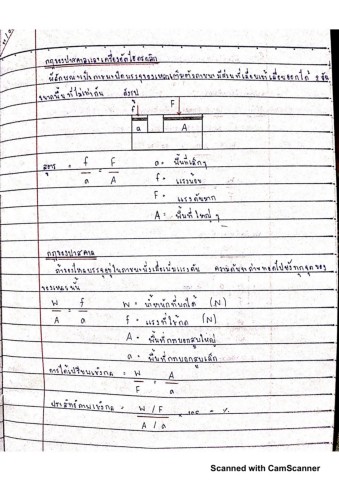 กฎของปาสคาลและเครื่องอัดไฮดรอลิก
มีลักษณะเป็นภาชนะปิดบรรจุของเหลวเต็มตัวภาชนะมีส่วนที่เลื่อนเข้าเลื่อนออกได้ 2 อัน
ขนาดพื้นที่ไม่เท่ากัน ดังรูป
f F
a A
สูตร = f/a = F/A
a = พื้นที่เล็กๆ
f = แรงน้อย
F = แรงดันมาก
A = พื้นที่ใหญ่ๆ
กฎของปาสคาล
ถ้าของไหลบรรจุอยู่ในภาชนะ แรงดัน ความดัน ไปยังทุกจุดของ
ของเหลวนั้น
W/A = f/a
W = น้ำหนักที่ยกได้ (N)
f = แรงที่ใช้กด (N)
A = พื้นที่กระบอกสูบใหญ่
a = พื้นที่กระบอกสูบเล็ก
การได้เปรียบเชิงกล = W/F = A/a
ประสิทธิภาพเชิงกล = W/F / A/a × 100 = %
Scanned with CamScanner